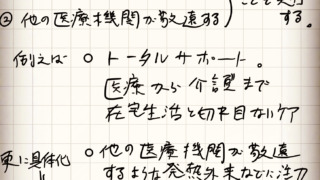 ② 他の医療機関が敬遠する
する。
例えば ○ トータルサポート。
医療から介護まで
在宅生活と切れ目ないケア
更に具体化 ○ 他の医療機関が敬遠
するような発熱外来などに注力